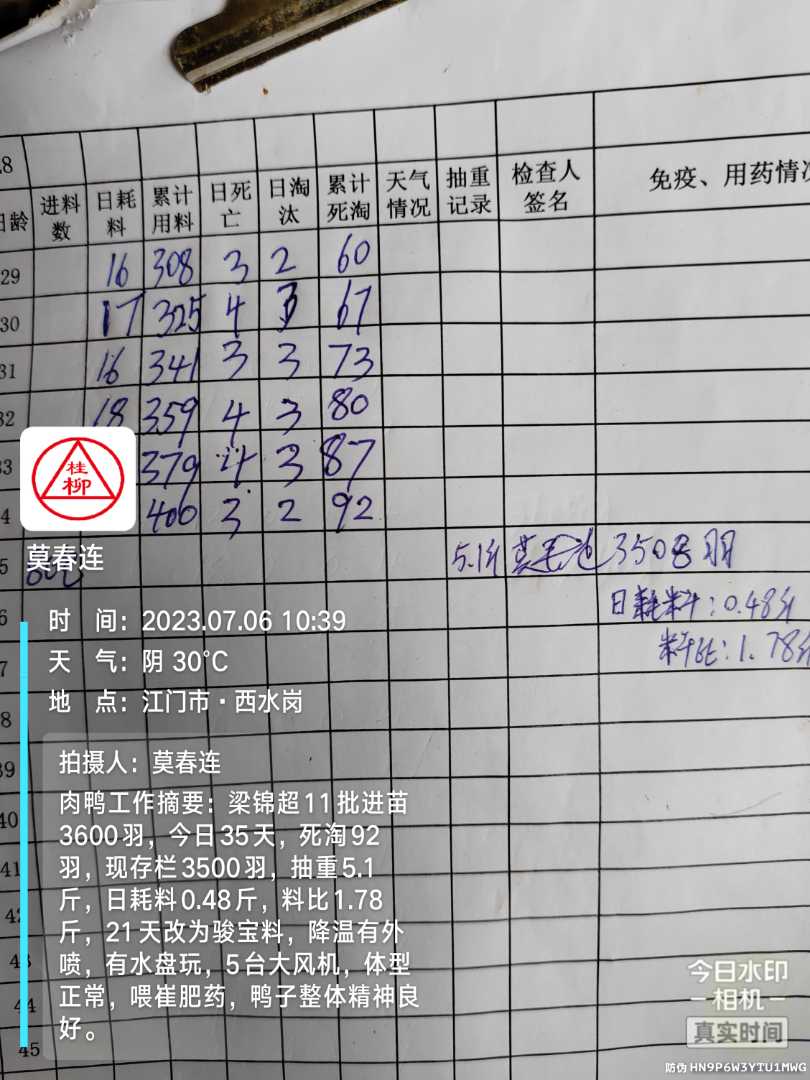 28
日龄 进料数 日耗料 累计用料 日死亡 日淘汰 累计死淘 天气情况 抽重记录 检查人签名 免疫、用药情况
29 16 308 3 2 60
30 17 325 4 3 67
31 16 341 3 3 73
32 18 359 4 3 80
33 379 4 3 87
34 400 3 2 92
35 5.1斤 莫春连 3508羽
36 日耗料:0.48斤
37 料比:1.78斤
38
39
40
41
42
43
44
45
桂柳
莫春连
时 间:2023.07.06 10:39
天 气:阴 30℃
地 点:江门市·西水岗
拍摄人:莫春连
肉鸭工作摘要:梁锦超11批进苗
3600羽,今日35天,死淘92
羽,现存栏3500羽,抽重5.1
斤,日耗料0.48斤,料比1.78
斤,21天改为骏宝料,降温有外
喷,有水盘玩,5台大风机,体型
正常,喂崔肥药,鸭子整体精神良
好。
今日水印
相机
真实时间
防伪 HN9P6W3YTU1MWG